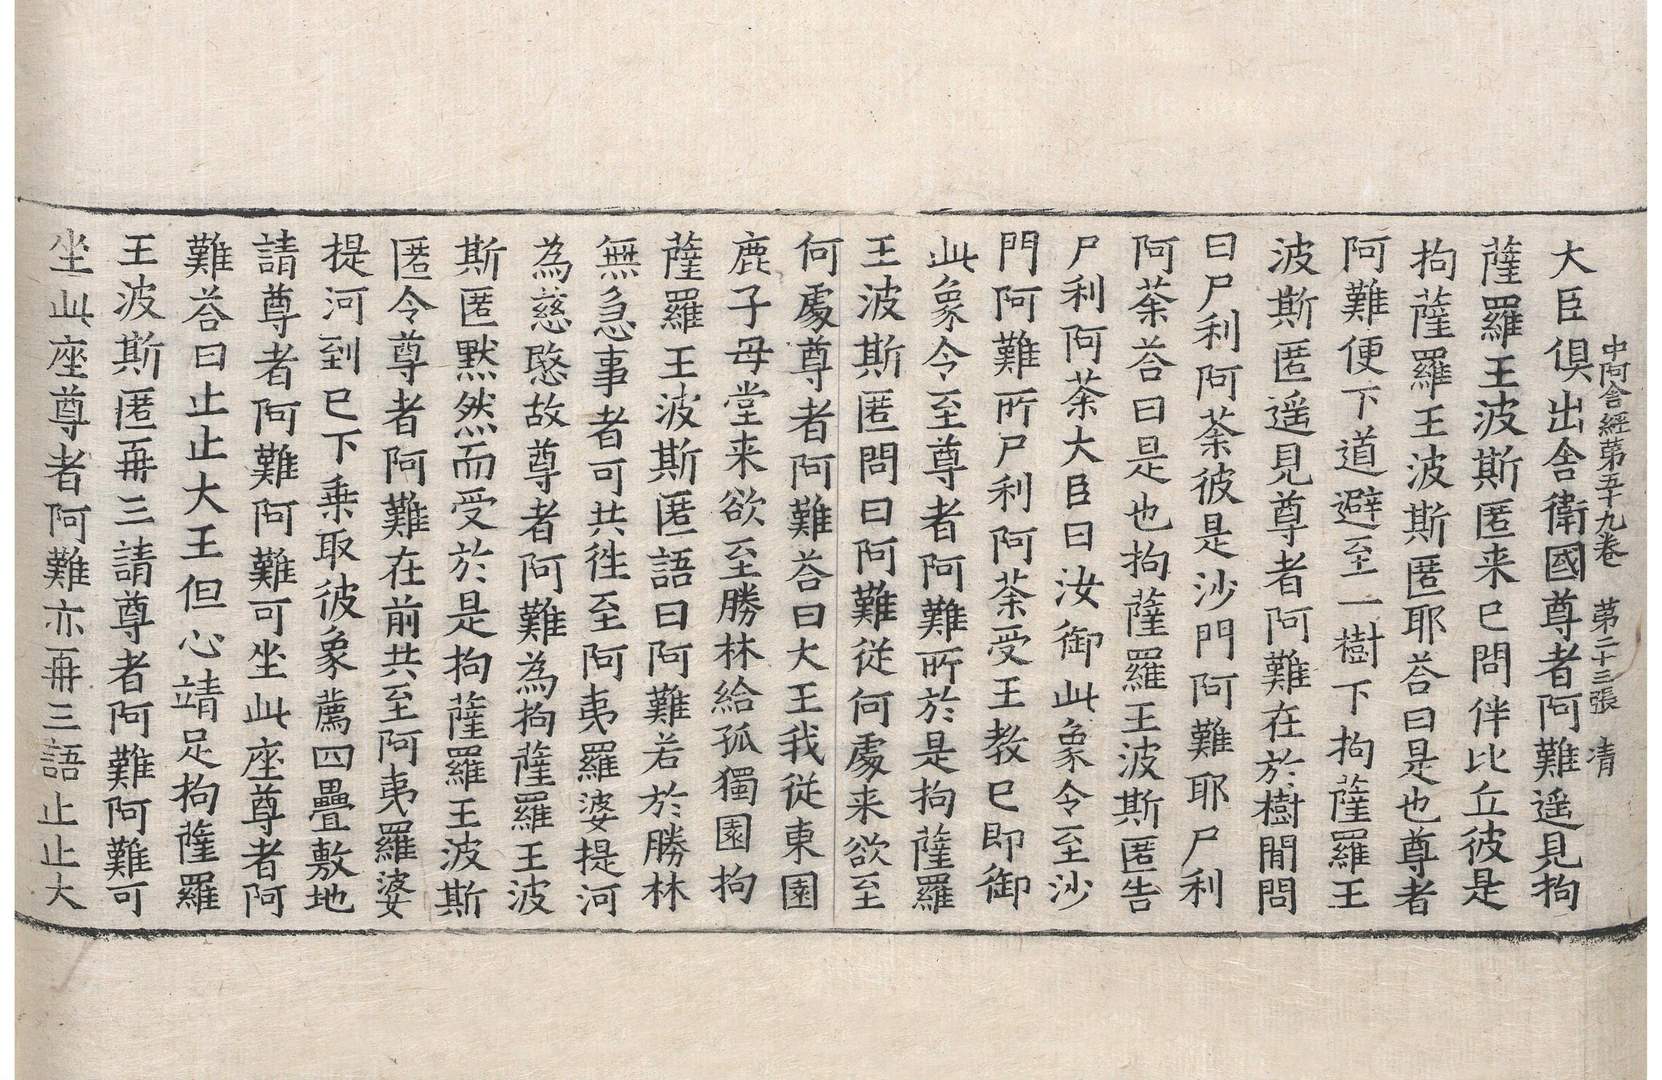 中阿含經第五十九卷　第二十三張　清
大臣俱出舍衛國尊者阿難遥見拘
薩羅王波斯匿来已問伴比丘彼是
拘薩羅王波斯匿耶荅曰是也尊者
阿難便下道避至一樹下拘薩羅王
波斯匿遥見尊者阿難在於樹閒問
曰尸利阿荼彼是沙門阿難耶尸利
阿荼荅曰是也拘薩羅王波斯匿告
尸利阿荼大臣曰汝御此象令至沙
門阿難所尸利阿荼受王教已即御
此象令至尊者阿難所於是拘薩羅
王波斯匿問曰阿難従何處来欲至
何處尊者阿難荅曰大王我従東園
鹿子母堂来欲至勝林給孤獨園拘
薩羅王波斯匿語曰阿難若於勝林
無急事者可共徃至阿夷羅婆提河
為慈愍故尊者阿難為拘薩羅王波
斯匿默然而受於是拘薩羅王波斯
匿令尊者阿難在前共至阿夷羅婆
提河到已下乗取彼象薦四疊敷地
請尊者阿難阿難可坐此座尊者阿
難荅曰止止大王但心靖足拘薩羅
王波斯匿再三請尊者阿難阿難可
坐此座尊者阿難亦再三語止止大